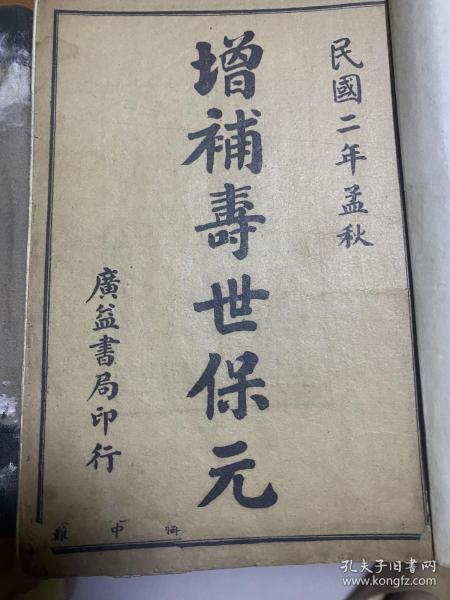 民國二年孟秋
增補壽世保元
廣益書局印行
中
孔夫子旧书网
www.kongfz.com